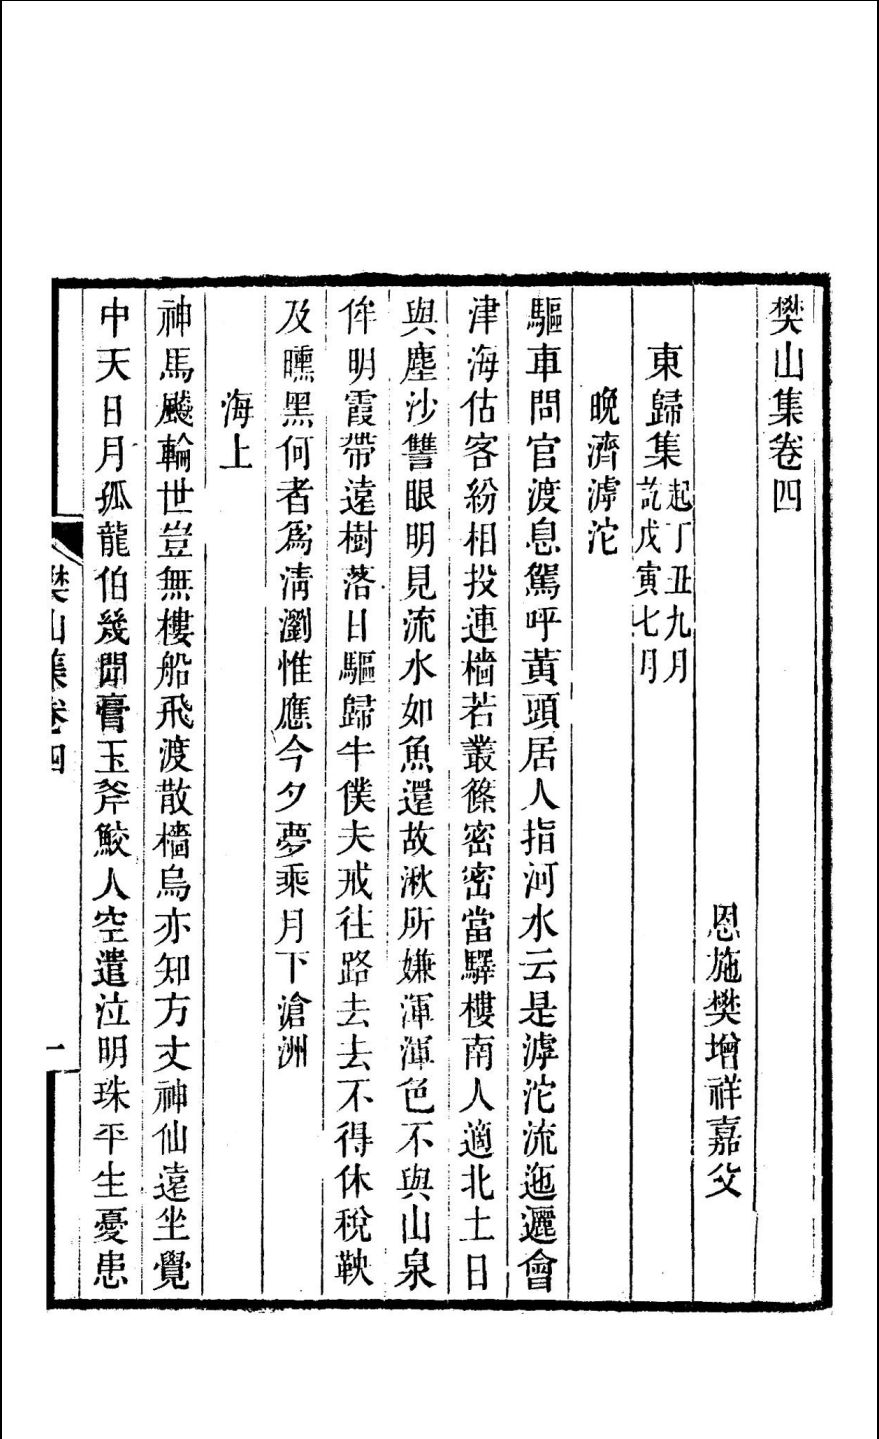 樊山集卷四
恩施樊增祥嘉父
東歸集起丁丑九月
訖戊寅七月
晚濟滹沱
驅車問官渡息駕呼黃頭居人指河水云是滹沱流迤邐會
津海估客紛相投連檣若叢篠密密當驛樓南人適北土日
與塵沙讐眼明見流水如魚還故湫所嫌渾渾色不與山泉
侔明霞帶遠樹落日驅歸牛僕夫戒往路去去不得休稅鞅
及曛黑何者爲淸瀏惟應今夕夢乘月下滄洲
海上
神馬飈輪世豈無樓船飛渡散檣烏亦知方丈神仙遠坐覺
中天日月孤龍伯幾聞膏玉斧鮫人空遣泣明珠平生憂患
樊山集卷四
一